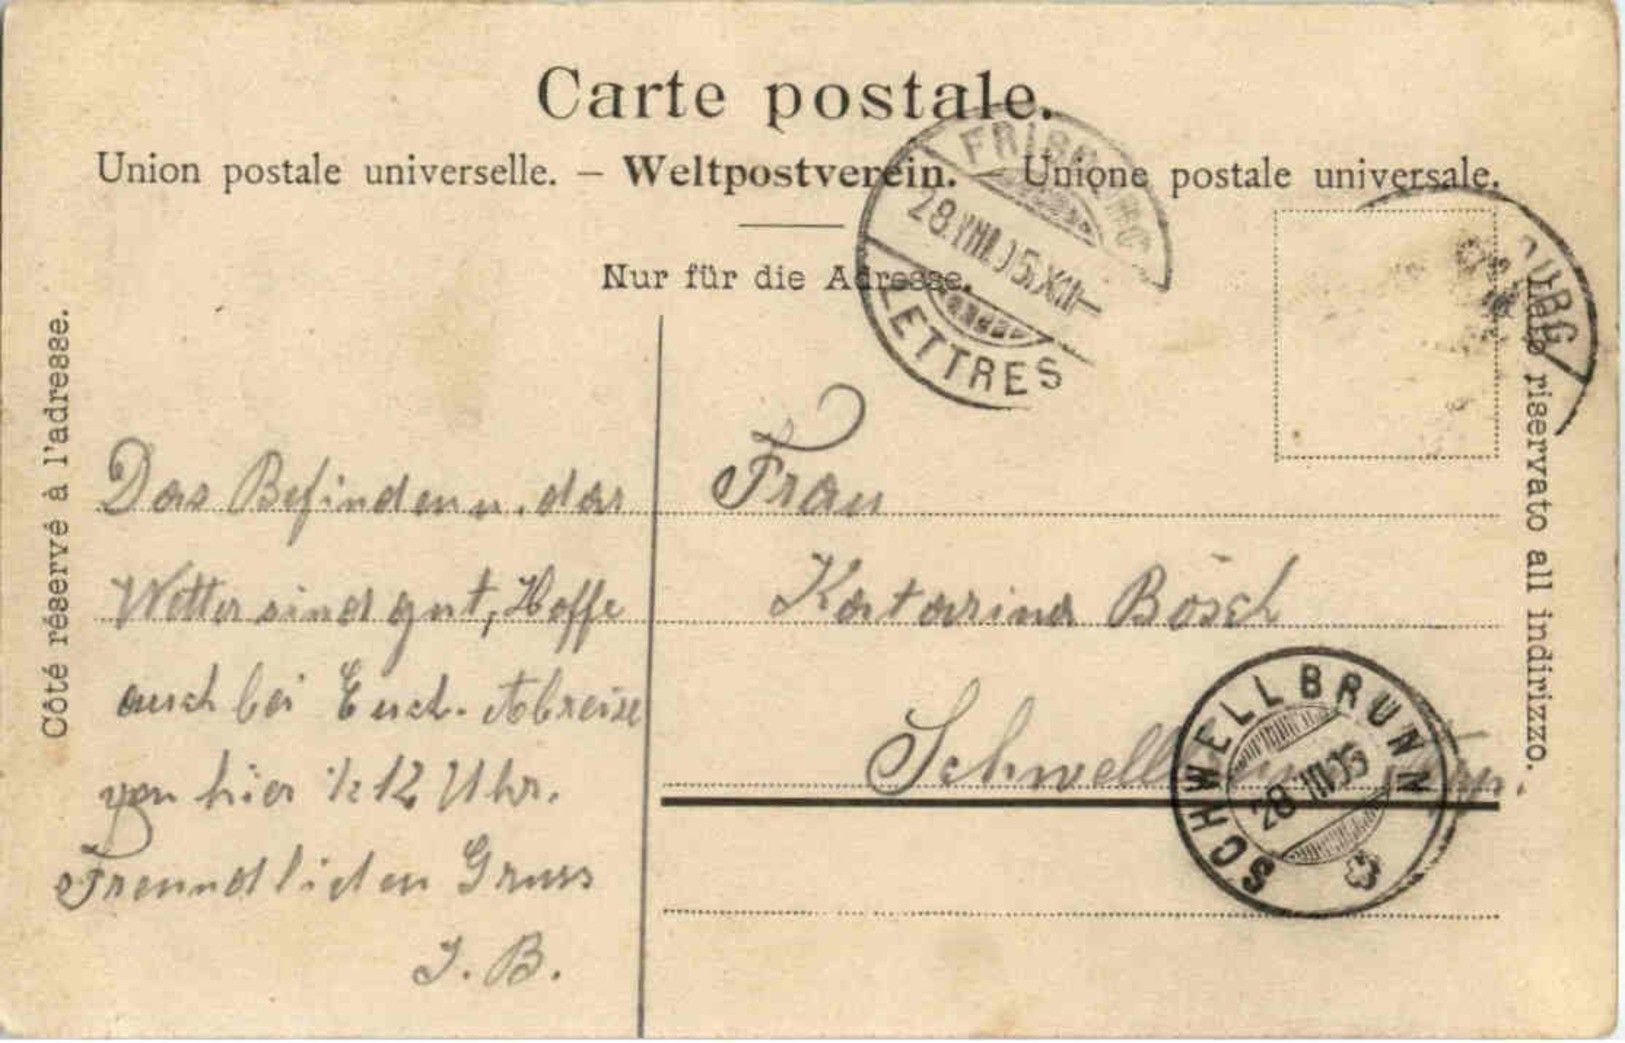 Carte postale.
Union postale universelle. – Weltpostverein. – Unione postale universale.
Nur für die Adresse.
FRIBOURG
28.VIII.05.XII–
LETTRES
Côté réservé à l'adresse.
riservato all indirizzo.
Das Befinden u. das
Wetter sind gut, Hoffe
auch bei Euch. Abreise
von hier ½ 12 Uhr.
Freundlichen Gruss
J. B.
Frau
Katarina Bösch
Schwellbrunn
SCHWELLBRUNN
28.VIII.05